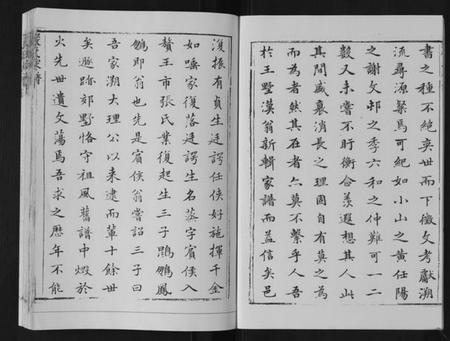 書之種不絕奕世而下徵文考獻溯
流尋源槩焉可紀如小山之黃任陽
之謝文邨之季六和之仲難可一二
數又未嘗不盱衡合羨遐想其人此
其間盛衰消長之理固自有莫之為
而為者然其在者亦莫不繫乎人吾
於王墅漢翁新輯家譜而益信矣邑
復振有貞生廷諤任俠好施揮千金
如唾家復落廷諤生名蓀字賓侯入
贅王市張氏業復起生三子鵾鵬鳳
鵬即翁也先是賓侯翁嘗詔三子曰
吾家溯大理公以來逮而輩十餘世
矣雖踏郊墅恪守祖風舊譜中燬於
火先世遺文蕩焉吾求之歷年不能